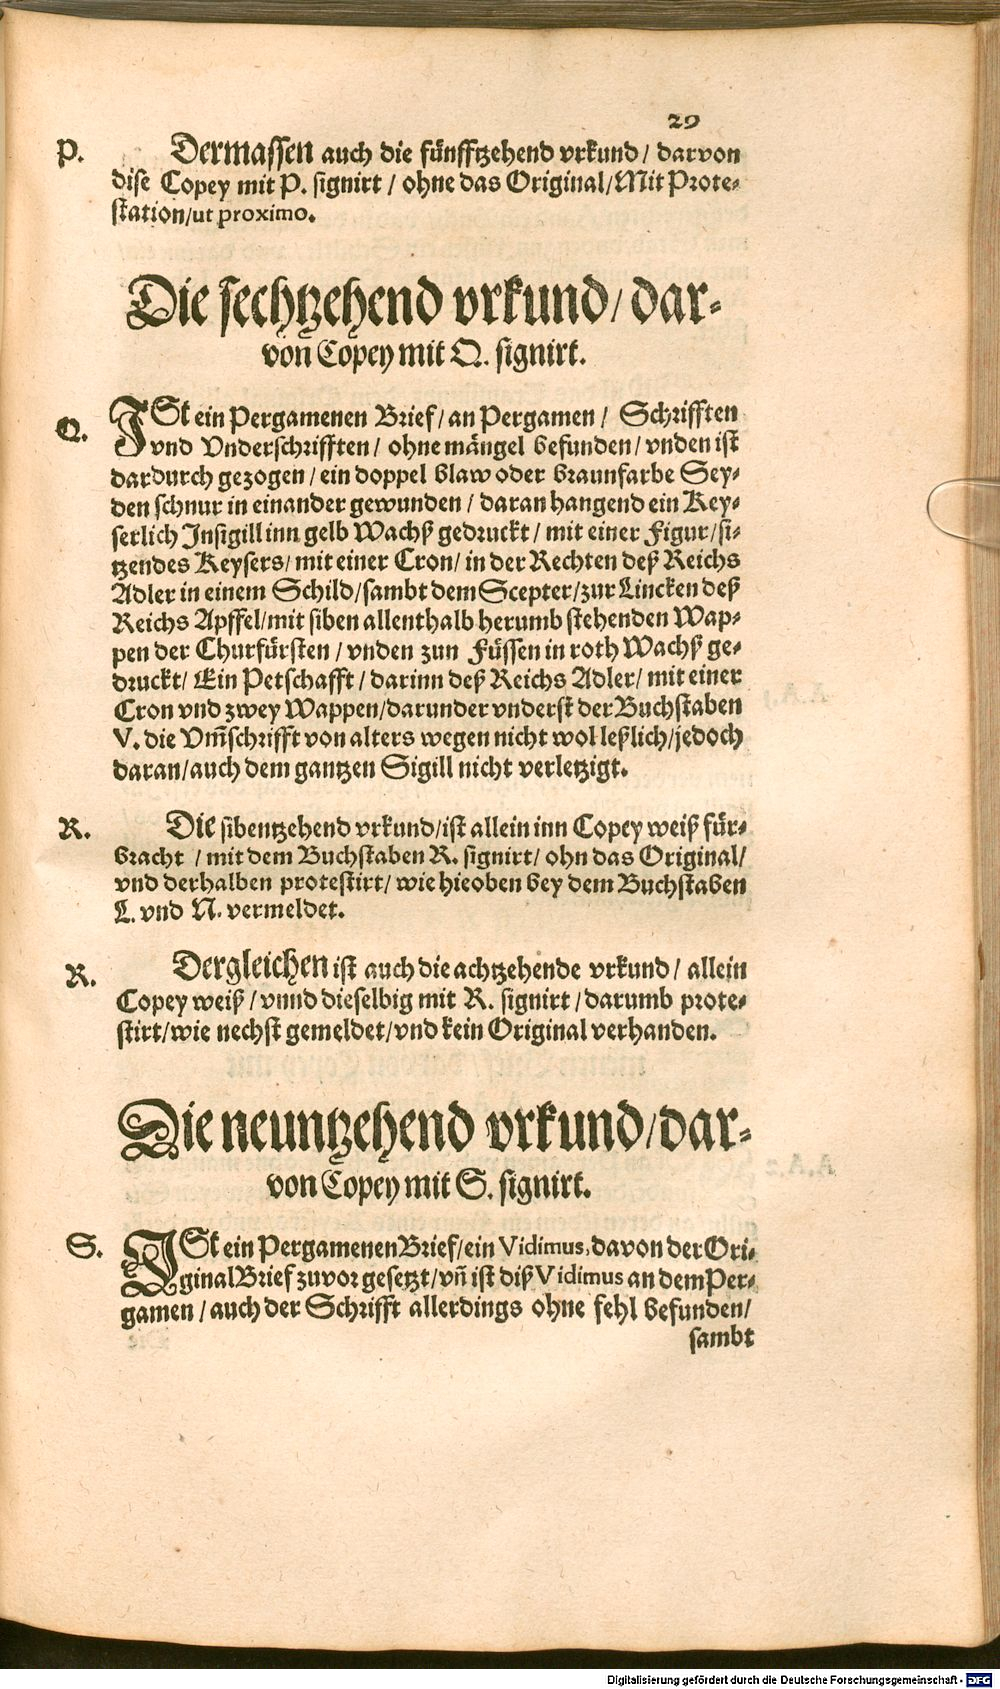 29
P. Dermassen auch die fünfftzehend vrkund / darvon
dise Copey mit P. signirt / ohne das Original / Mit Prote-
station / ut proximo.
Die sechtzehend vrkund / dar-
von Copey mit Q. signirt.
Q. ISt ein Pergamenen Brief / an Pergamen / Schrifften
vnd Vnderschrifften / ohne mängel befunden / vnden ist
dardurch gezogen / ein doppel blaw oder braunfarbe Sey-
den schnur in einander gewunden / daran hangend ein Key-
serlich Insigill inn gelb Wachß gedruckt / mit einer Figur / si-
tzendes Keysers / mit einer Cron / in der Rechten deß Reichs
Adler in einem Schild / sambt dem Scepter / zur Lincken deß
Reichs Apffel / mit siben allenthalb herumb stehenden Wap-
pen der Churfürsten / vnden zun Füssen in roth Wachß ge-
druckt / Ein Petschafft / darinn deß Reichs Adler / mit einer
Cron vnd zwey Wappen / darunder vnderst der Buchstaben
V. die Vm̄schrifft von alters wegen nicht wol leßlich / jedoch
daran / auch dem gantzen Sigill nicht verletzigt.
R. Die sibentzehend vrkund / ist allein inn Copey weiß für-
bracht / mit dem Buchstaben R. signirt / ohn das Original /
vnd derhalben protestirt / wie hieoben bey dem Buchstaben
L. vnd N. vermeldet.
R. Dergleichen ist auch die achtzehende vrkund / allein
Copey weiß / vnnd dieselbig mit R. signirt / darumb prote-
stirt / wie nechst gemeldet / vnd kein Original verhanden.
Die neuntzehend vrkund / dar-
von Copey mit S. signirt.
S. ISt ein Pergamenen Brief / ein Vidimus, davon der Ori-
ginal Brief zuvor gesetzt / vñ ist diß Vidimus an dem Per-
gamen / auch der Schrifft allerdings ohne fehl befunden /
sambt
Digitalisierung gefördert durch die Deutsche Forschungsgemeinschaft - DFG